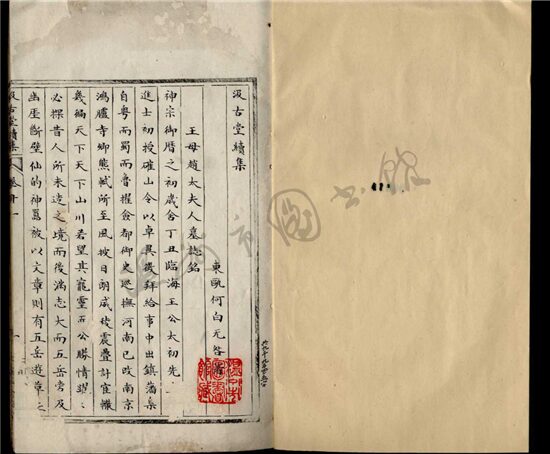 汲古堂續集
東甌何白无咎著
王母趙太夫人墓誌銘
神宗御曆之初歲舍丁丑臨海王公太初先
進士初授確山令以卓異徵拜給事中出鎮藩臬
自粵而蜀而魯擢僉都御史巡撫河南已改南京
鴻臚寺卿熊軾所至風披日朗威稜震疊計宦轍
幾徧天下天下山川若望其寵靈公勝情
必探昔人所未造之境而後滿志大而五岳旁及
幽厓斷壁仙的神嵓被以文章則有五岳遊草之
汲古堂續集 卷廾一 一
市圖